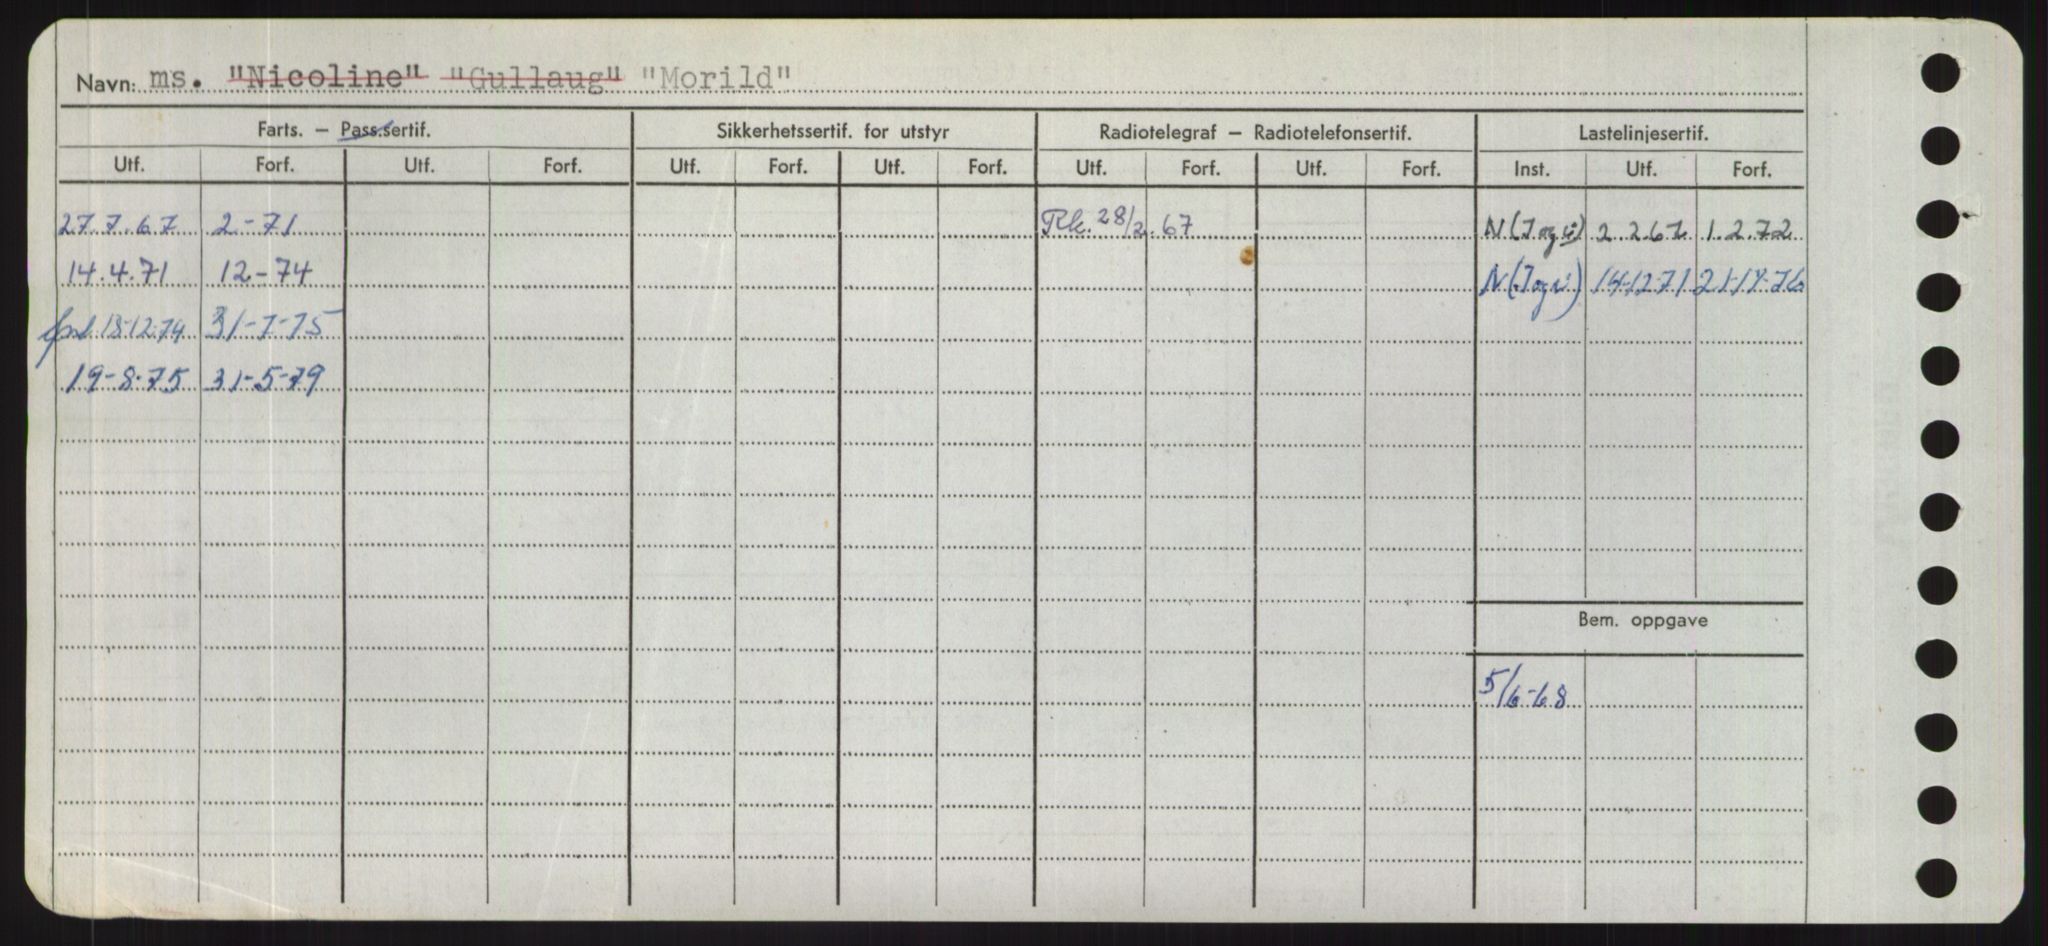 Navn: ms. "Nicoline" "Gullaug" "Morild"
Farts. – Pass.sertif. Sikkerhetssertif. for utstyr Radiotelegraf – Radiotelefonsertif. Lastelinjesertif.
Utf. Forf. Utf. Forf. Utf. Forf. Utf. Forf. Utf. Forf. Utf. Forf. Inst. Utf. Forf.
27.7.67 2-71 28/2.67 N (I og u) 2.2.67 1.2.72
14.4.71 12-74 N (I og u) 14-12-71
13-12-74 31-7-75
19-8-75 31-5-79
Bem. oppgave
5/6-68